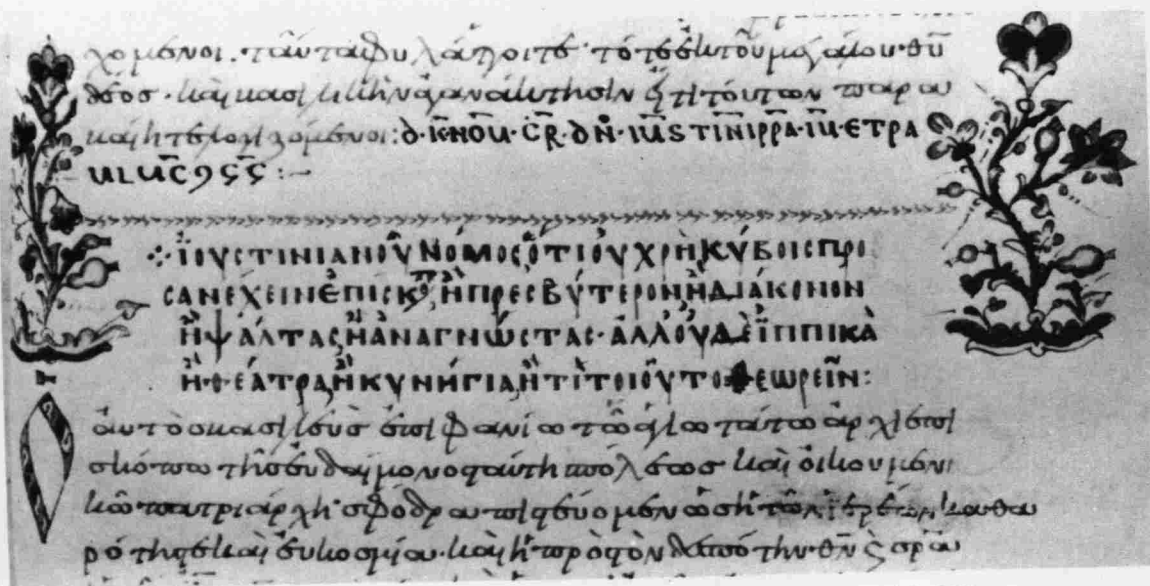 χόμενοι· ταῦτα φυλάττοιτε· τό τε ἐκ τοῦ μεγάλου θῦ
δέος· καὶ βασιλικὴν ἀγανάκτησιν ἐπὶ τούτων παρα
λογιζόμενοι: D· K̅ NOU· C̅R̅· DN̅· IU̅STINI P̅P̅A·
Ἰουστινιανοῦ νόμος ὅτι οὐ χρὴ κύβοις προ
σανέχειν ἐπίσκοπ ἢ πρεσβύτερον ἢ διάκονον
ἢ ψάλτας ἢ ἀναγνώστας· ἀλλ' οὐδὲ ἱππικὰ
ἢ θέατρα ἢ κυνήγια ἤ τι τοιοῦτο θεωρεῖν:
αὐτὸς βασιλεὺς ἐπιφανίω τῶ ἁγιωτάτω ἀρχιεπι
σκόπω τῆς εὐδαίμονος ταύτης πόλεως καὶ οἰκουμενι
κῶ πατριάρχη· σφόδρα πιστεύομεν ὡς ἡ τῶν ἱερέων καθα
ρότης τε καὶ εὐκοσμία· καὶ ἡ πρὸς τὸν δεσπότην θ̅ν̅ ϛ σ̅ρα